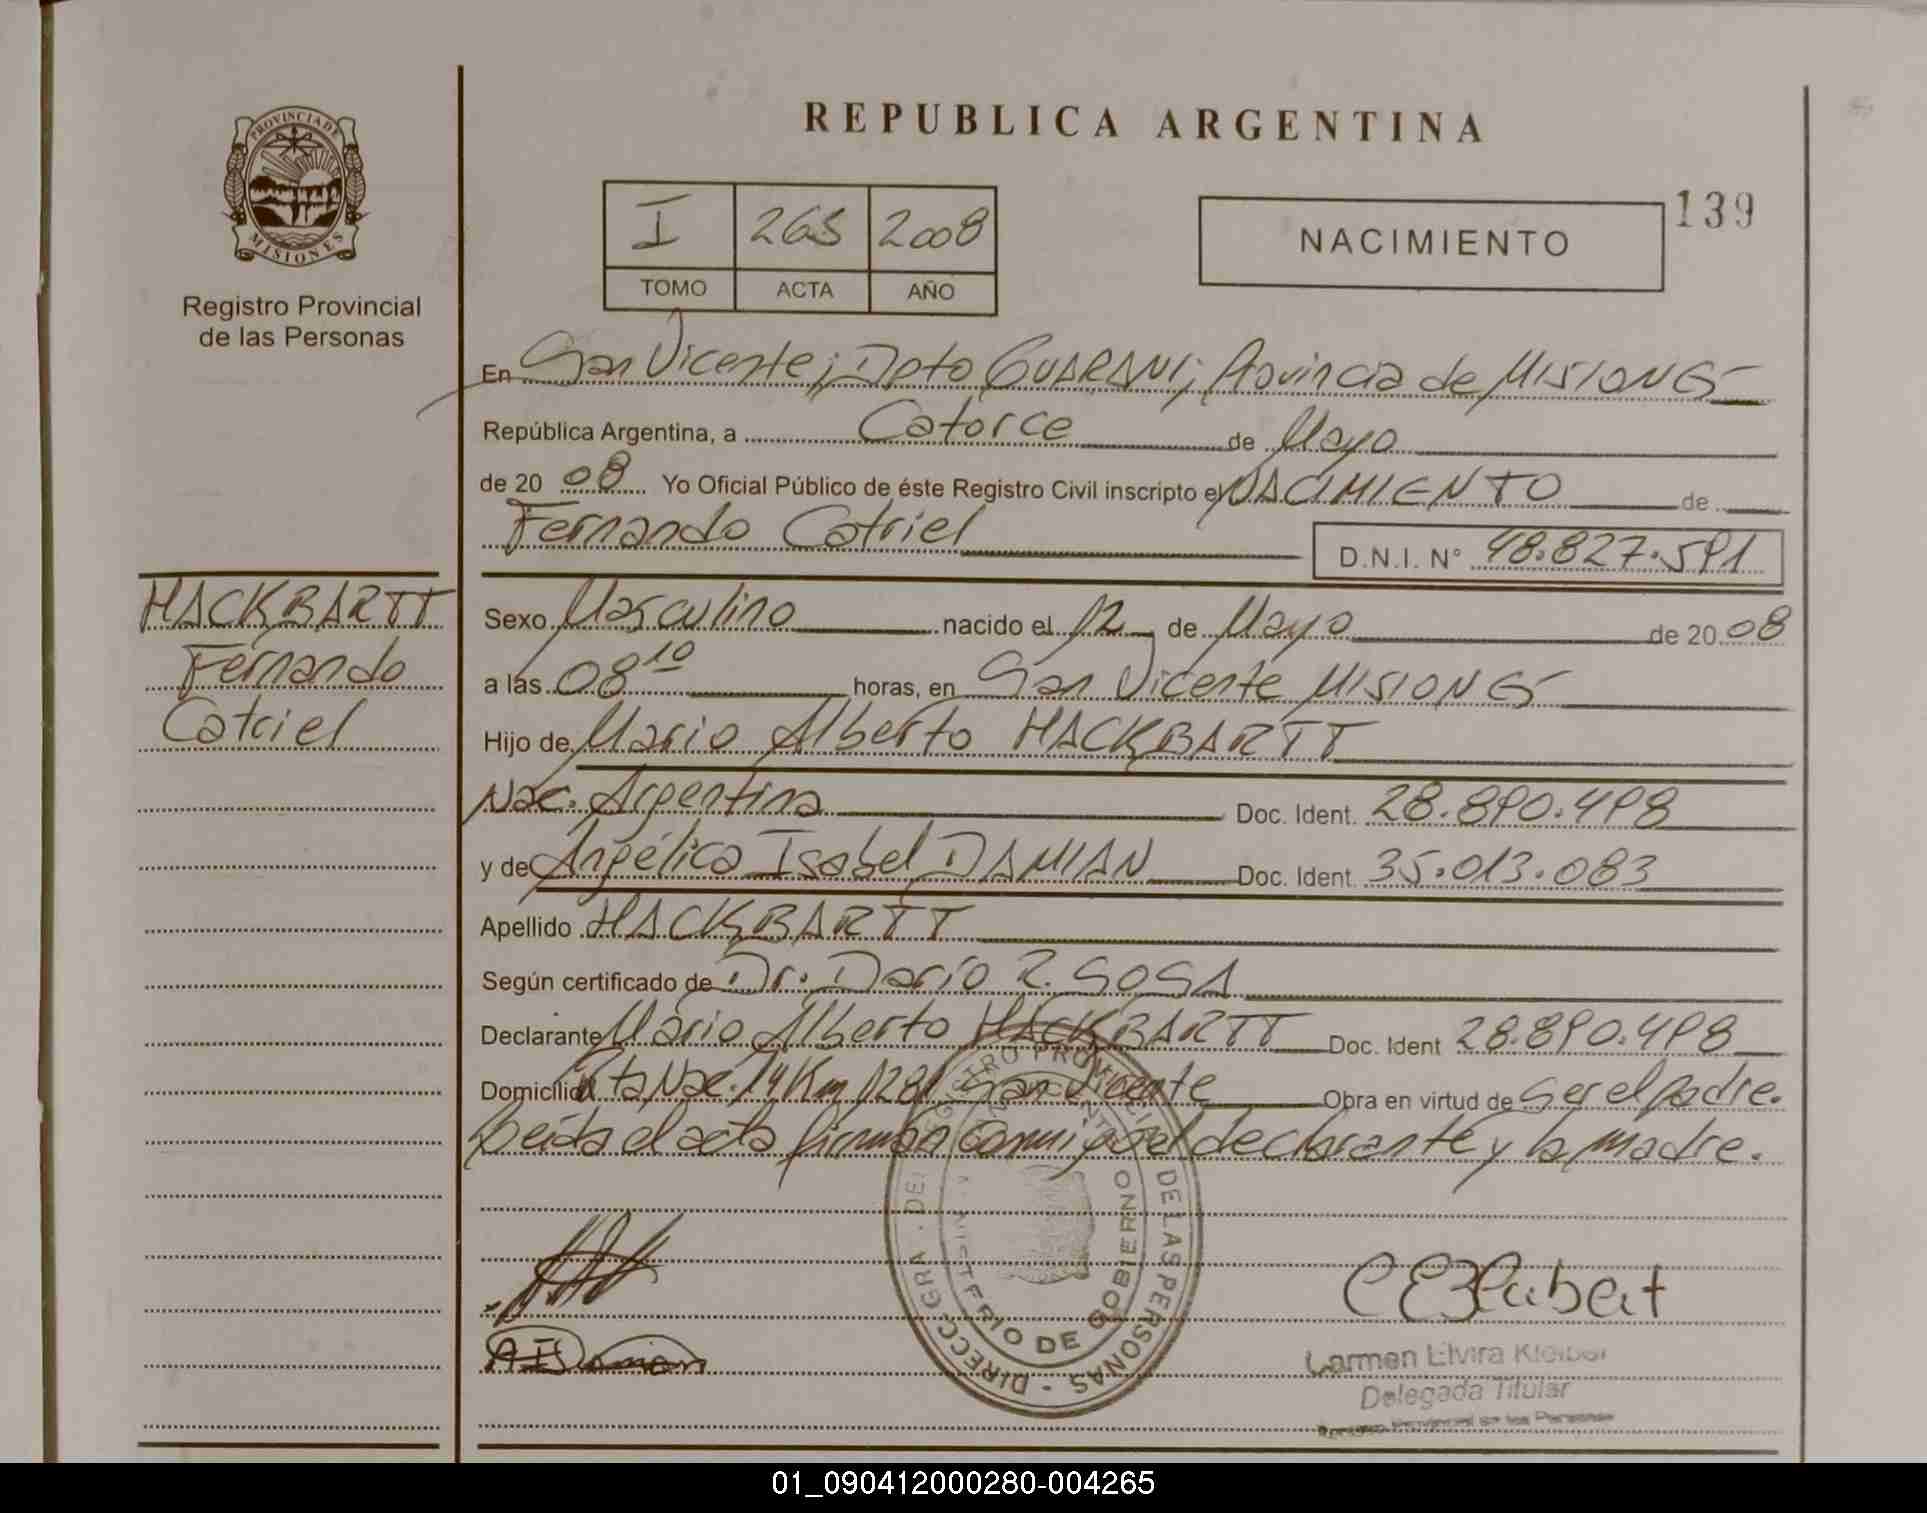 REPUBLICA ARGENTINA
PROVINCIA DE
MISIONES
Registro Provincial
de las Personas
I 265 2008
TOMO ACTA AÑO
NACIMIENTO
139
En San Vicente; Dpto GUARANI; Provincia de MISIONES
República Argentina, a Catorce de Mayo
de 20 08 Yo Oficial Público de éste Registro Civil inscripto el NACIMIENTO de
Fernando Catriel D.N.I. N° 48.827.591
HACKBARTT
Fernando
Catriel
Sexo Masculino nacido el 12 de Mayo de 20 08
a las 08 10 horas, en San Vicente MISIONES
Hijo de Mario Alberto HACKBARTT
Nac. Argentina Doc. Ident. 28.890.498
y de Angélica Isabel DAMIAN Doc. Ident. 35.013.083
Apellido HACKBARTT
Según certificado de Dr. Darío R. SOSA
Declarante Mario Alberto HACKBARTT Doc. Ident 28.890.498
Domicilio Ruta Nac. 14 Km 1281 San Vicente Obra en virtud de ser el padre.
Leída el acta firman conmigo el declarante y la madre.
DE LAS PERSONAS
DE GOBIERNO
A I Damian
Carmen Elvira Kleiber
Delegada Titular
Registro Provincial de las Personas
01_090412000280-004265